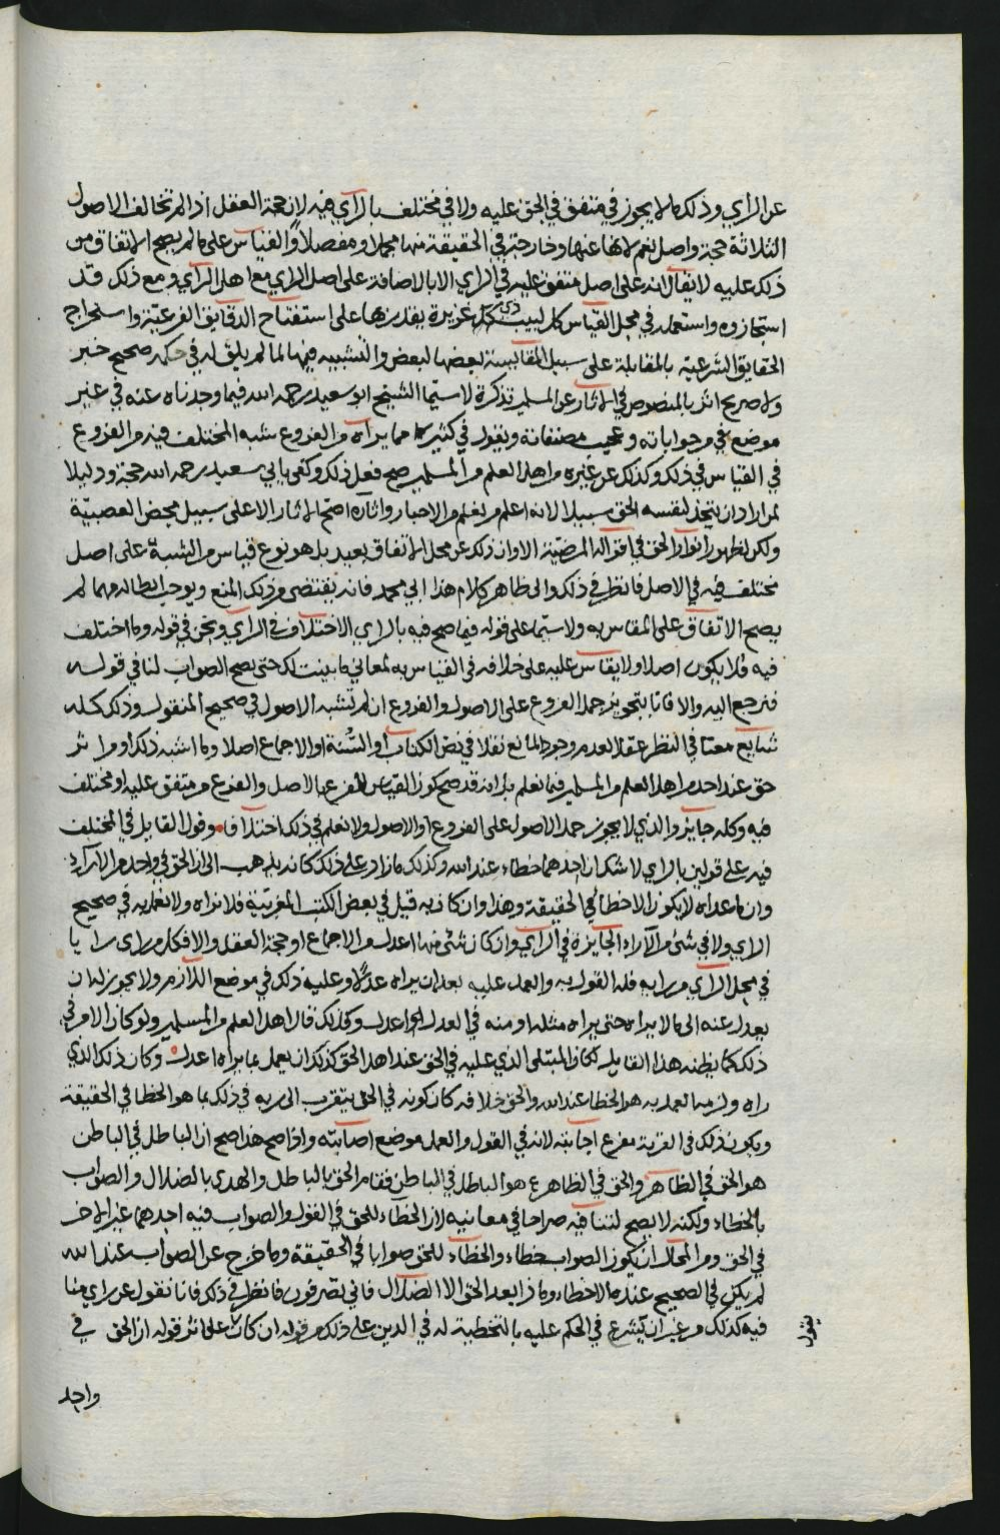 عن الراي وذلك ما لا يجوز في متفق في الحق عليه ولا في مختلف بالراي فيه لان حجة العقل اذا لم تخالف الاصول
الثلاثة حجة واصل نعم لانها عنها وخارجة في الحقيقة منها مجملا ومفصلا والقياس على ما لم يصح الاتفاق من
ذلك عليه لا يقال انه على اصل متفق عليه في الراي الا بالاضافة على اصل الراي مع اهل الراي ومع ذلك قد
استجازوه واستعمله في محل القياس كل لبيب ذي كل غزيرة يقدر بها على استفتاح الدقايق الفرعية واستخراج
الحقايق الشرعية بالمقابلة على سبيل المقايسة بعضها لبعض والتشبيه فيها لما لم يلق له في حكمه صحيح خبر
ولا صريح اثر بالمنصوص في الاثار عن المسلمين تذكرة لا سيما الشيخ ابو سعيد رحمه الله فيما وجدناه عنه في غير
موضع في جواباته وعجيب مصنفاته ويقول في كثير مما يراه من الفروع شبه المختلف فيه من الفروع
في القياس في ذلك وكذلك عن غيره من اهل العلم من المسلمين صح فعل ذلك وكفى بابي سعيد رحمه الله حجة ودليلا
لمن اراد ان يتخذ لنفسه الحق سبيلا لانه اعلم من نعلم من الاحبار واثاره اصح الاثار لا على سبيل محض العصبية
ولكن لظهور انوار الحق في اقواله المرضية الا وان ذلك عن محل الاتفاق بعيد بل هو نوع قياس من الشبه على اصل
مختلف فيه في الاصل فانظر في ذلك والى ظاهر كلام هذا ابي محمد فانه يقتضي من ذلك المنع ويوجب ابطاله مهما لم
يصح الاتفاق على المقاس به ولا سيما على قوله فيما صح فيه بالراي الاختلاف في الراي ونحن في قوله وما اختلف
فيه فلا يكون اصلا ولا يقاس عليه على خلافه في القياس به لمعاني ما بينت لك حتى يصح الصواب لنا في قوله
فنرجع اليه والا فانا بتجويز حمل الفروع على الاصول والفروع ان لم تشبه الاصول في صحيح المنقول وذلك كله
شايع معنا في النظر عقلا لعدم وجود المانع نقلا في نص الكتاب او السنة او الاجماع اصلا وما اشبه ذلك او من اثر
حق عند احد من اهل العلم من المسلمين فيما نعلم بل انه قد صح كون القياس للفرع بالاصل والفرع من متفق عليه او مختلف
فيه وكله جايز والذي لا يجوز حمل الاصول على الفروع او الاصول ولا نعلم في ذلك اختلافا وقول القايل في المختلف
فيه على قولين بالراي لا شك ان احدهما خطاء عند الله وكذلك ما زاد على ذلك كانه يذهب الى ان الحق في واحد من الآراء
وان ما عداه لا يكون الا خطا في الحقيقة وهذا وان كان به قيل في بعض الكتب المغربية فلا نراه ولا نعمل به في صحيح
الراي ولا في شئ من الآراء الجايزة في الراي وان كان شئ منها اعدل من الاجماع او حجة العقل والا فكل من راى رايا
في محل الراي من رايه فله القول به والعمل عليه بعد ان يراه عدلا وعليه ذلك في موضع اللازم ولا يجوز له ان
يعدل عنه الى ما لا يراه حتى يراه مثله او منه في العدل اعدل وكذلك قال اهل العلم من المسلمين ولو كان الامر في
ذلك كما يظنه هذا القايل لكان المبتلى الذي عليه في الحق عند اهل الحق كذلك ان يعمل بما يراه اعدل وكان ذلك الذي
راه ولزمه العمل به هو الخطا عند الله والحق خلافه كان كونه في الحق يتقرب الى ربه في ذلك بما هو الخطا في الحقيقة
ويكون ذلك في القربة مفرع اجابته لانه في القول والعمل موضع اصابته واذا صح هذا صح ان الباطل في الباطن
هو الحق في الظاهر والحق في الظاهر هو الباطل في الباطن فقام الحق بالباطل والهدى بالضلال والصواب
بالخطاء ولكنه لا يصح لتنافيه صراحا في معانيه لان الخطاء للحق في القول والصواب فيه احدهما غير الاخر
في الحق ومن المحال ان يكون الصواب خطاء والخطاء للحق صوابا في الحقيقة وما خرج عن الصواب عند الله
لم يكن في الصحيح عنده الا خطاء وماذا بعد الحق الا الضلال فانى تصرفون فانظر في ذلك فانا نقول عن راي منا
فيه كذلك من غير ان يشرع في الحكم عليه بالتخطية له في الدين على ذلك من قوله ان كان على اثر قوله ان الحق في
يقول
واحد